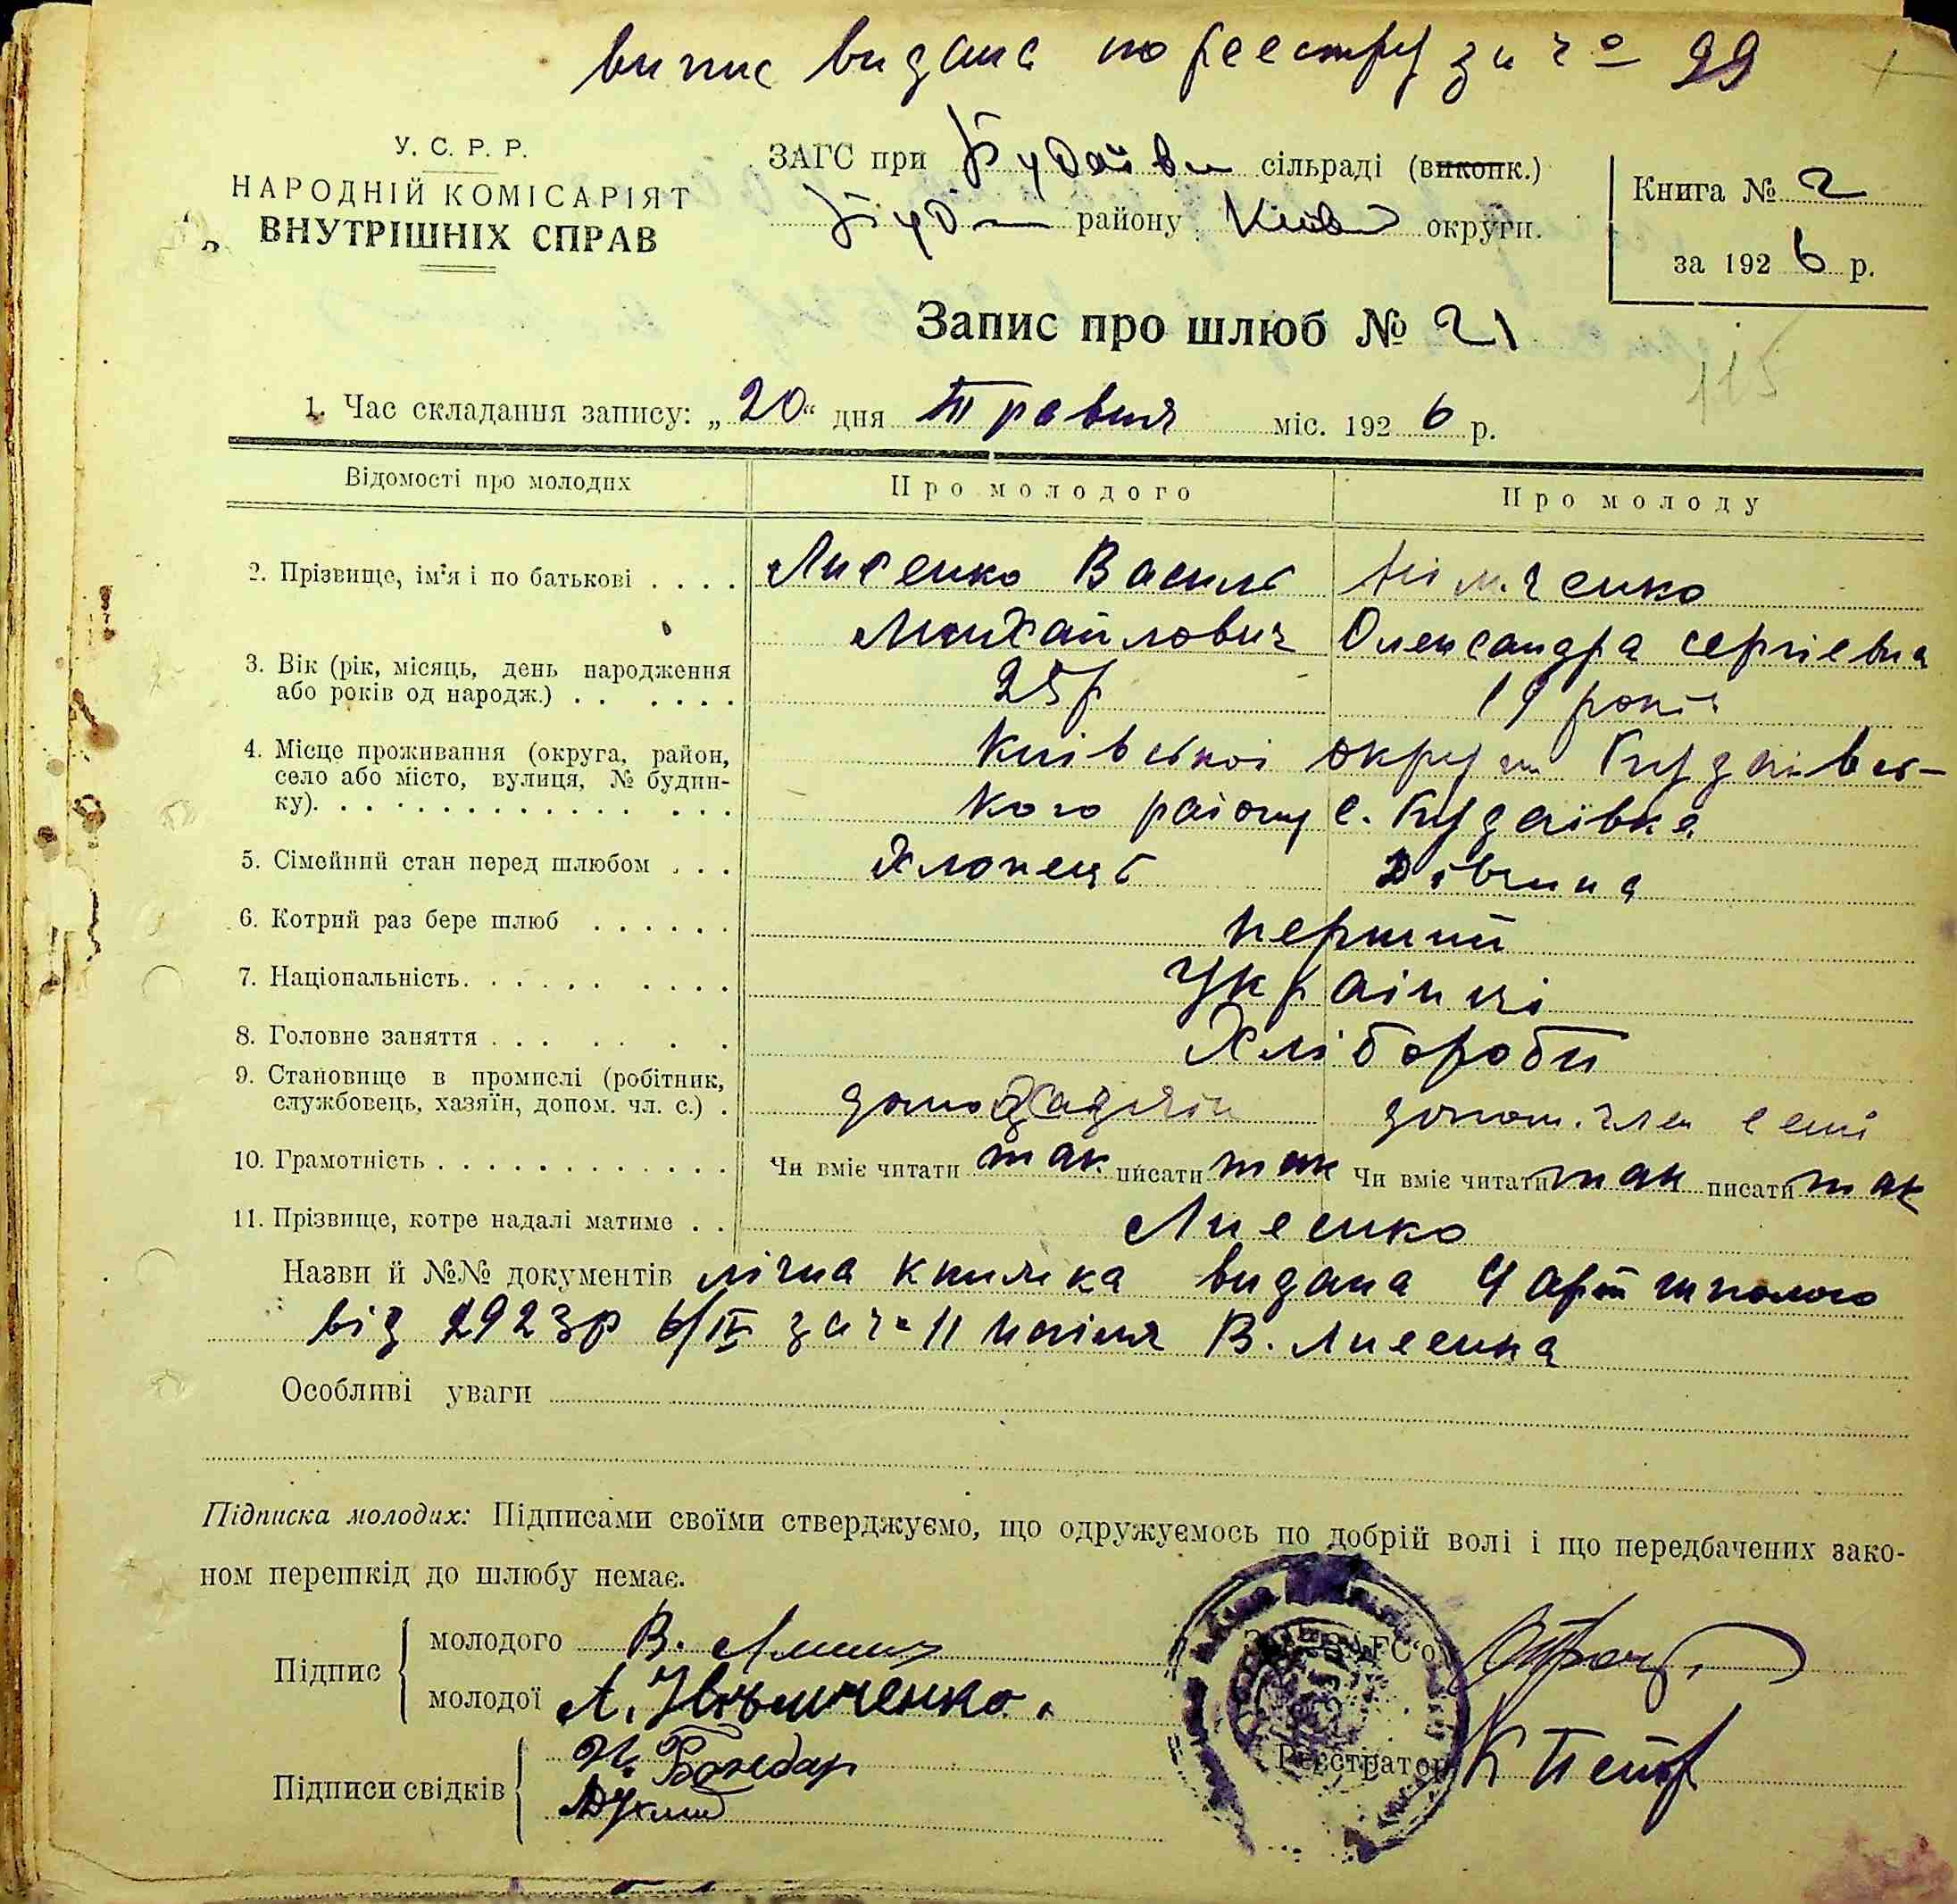 випис видана по реестру за ч° 99
У. С. Р. Р.
НАРОДНІЙ КОМІСАРІЯТ
ВНУТРІШНІХ СПРАВ
ЗАГС при сільраді (виконк.)
району Київ округи.
Книга № 2
за 1926 р.
Запис про шлюб № 21
115
1. Час складання запису: „20“ дня Травня міс. 1926 р.
Відомості про молодих
Про молодого
Про молоду
2. Прізвище, ім'я і по батькові . . . . Лисенко Василь Німченко
Михайлович Олександра сергіевна
3. Вік (рік, місяць, день народження
або років од народж.) . . . . . . 25р 19 років
4. Місце проживання (округа, район, Київськоі округи
село або місто, вулиця, № будин-
ку). . . . . . . . . . . . . . . кого раіону с.
5. Сімейний стан перед шлюбом . . . Хлопець Дівчина
6. Котрий раз бере шлюб . . . . . . перший
7. Національність. . . . . . . . . . Украінці
8. Головне заняття . . . . . . . Хлібороби
9. Становище в промислі (робітник,
службовець, хазяїн, допом. чл. с.) . допом. член семі
10. Грамотність . . . . . . . . . . . . Чи вміє читати так писати так Чи вміє читати так писати так
11. Прізвище, котре надалі матиме . . Лисенко
Назви й №№ документів лічна книжка видана
від 1923р 6/IV за ч= 11 на імя В. Лисенка
Особливі уваги
Підписка молодих: Підписами своїми стверджуємо, що одружуємось по добрій волі і що передбачених зако-
ном перешкід до шлюбу немає.
Підпис
молодого В.
молодої А.
Підписи свідків
Бондар
Зав. ЗАГС‘ом
Реєстратор К